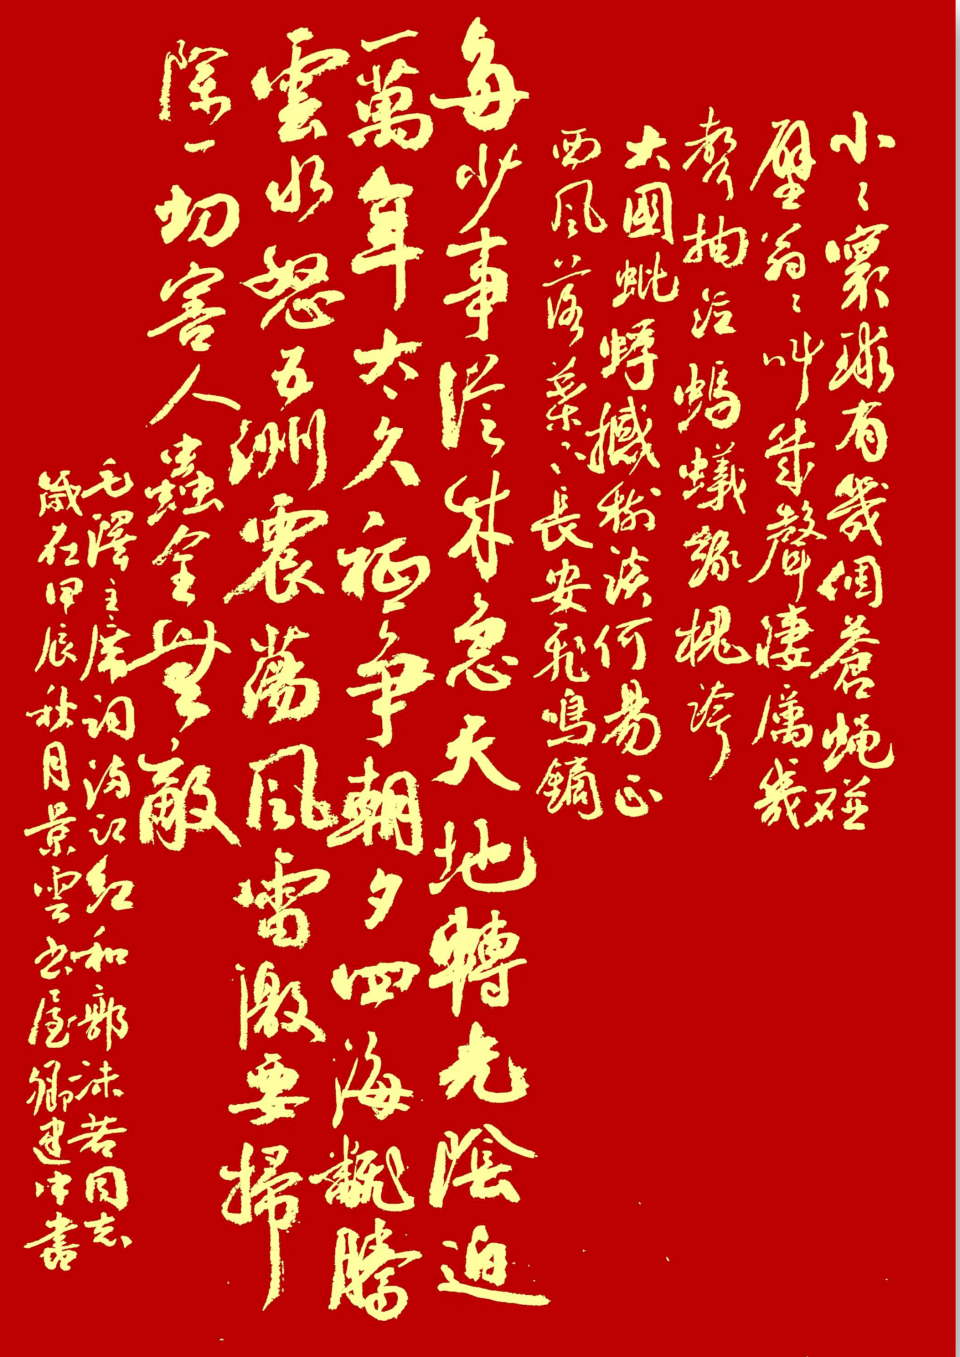 小〻寰球有幾個蒼蠅碰
壁翁〻叫幾聲淒厲幾
聲抽泣螞蟻緣槐誇
大國蚍蜉撼樹談何易正
西風落葉下長安飛鳴鏑
多少事從來急天地轉光陰迫
一萬年太久祇爭朝夕四海翻騰
雲水怒五洲震蕩風雷激要掃
除一切害人蟲全無敵
毛澤主席詞滿江紅和郭沫若同志
歲在甲辰秋月景雲書屋建中書